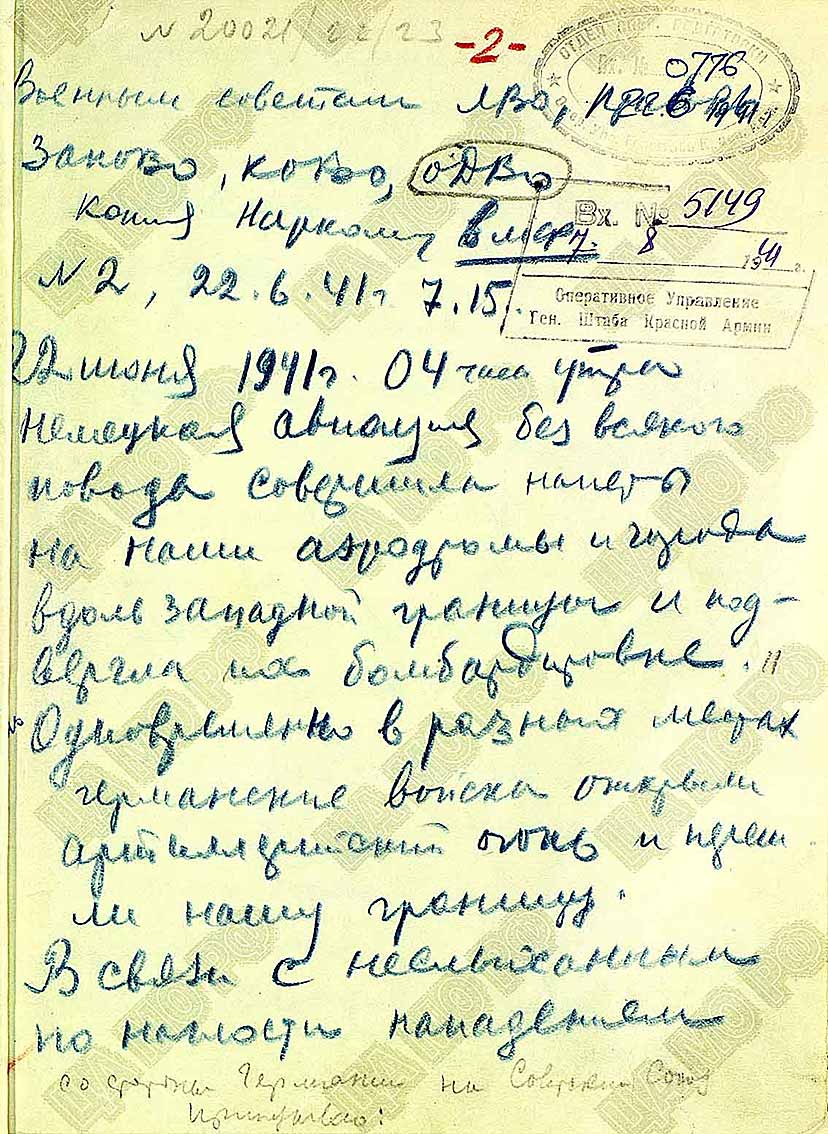 N 20021/22/23 -2-
ОТДЕЛ
Вх. № 0776
Военным советам ЛВО, ПрибОВО
ЗапОВО, КОВО, ОДВО
Копия Наркому ВМФ
Вх. № 5149
7. 8 1941 г.
N 2, 22.6.41 г 7.15.
Оперативное Управление
Ген. Штаба Красной Армии
22 июня 1941 г. 04 часа утра
немецкая авиация без всякого
повода совершила налеты
на наши аэродромы и города
вдоль западной границы и под-
вергла их бомбардировке. "
Одновременно в разных местах
германские войска открыли
артиллерийский огонь и переш
ли нашу границу.
В связи с неслыханным
по наглости нападением
со стороны Германии на Советский Союз
Приказываю:
ЦАМО РФ